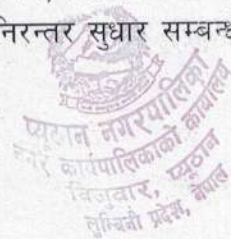 निरन्तर सुधार सम्बन्ध
प्यूठान नगरपालिका
नगर कार्यपालिकाको कार्यालय
विजुवार, प्यूठान
लुम्बिनी प्रदेश, नेपाल